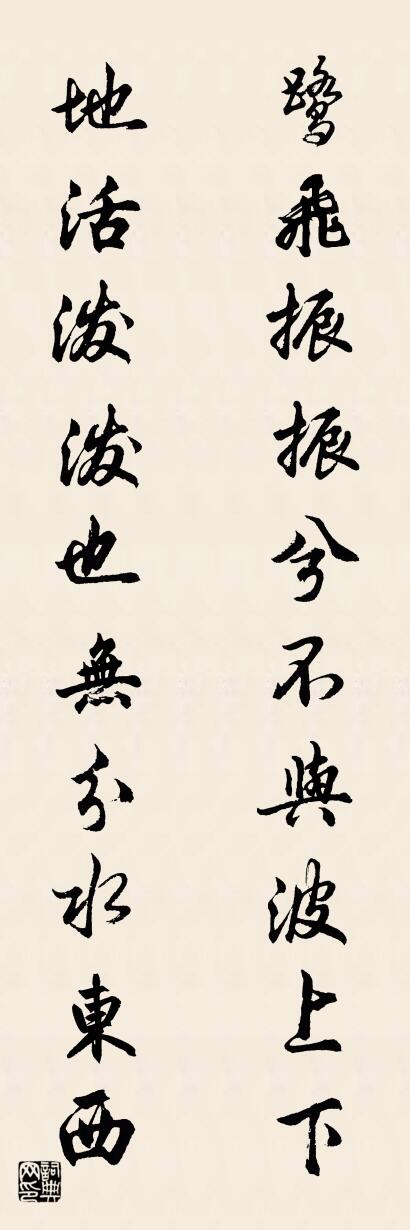 鷺飛振振兮不與波上下
地活潑潑也無分水東西
詞典网印